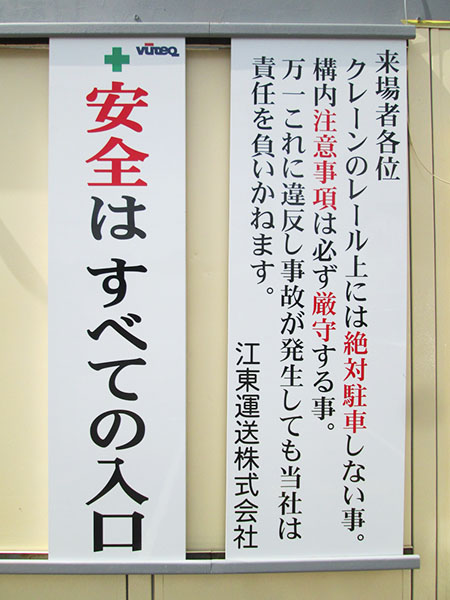 来場者各位
クレーンのレール上には絶対駐車しない事。
構内注意事項は必ず厳守する事。
万一これに違反し事故が発生しても当社は
責任を負いかねます。
江東運送株式会社
VUTEQ
安全はすべての入口